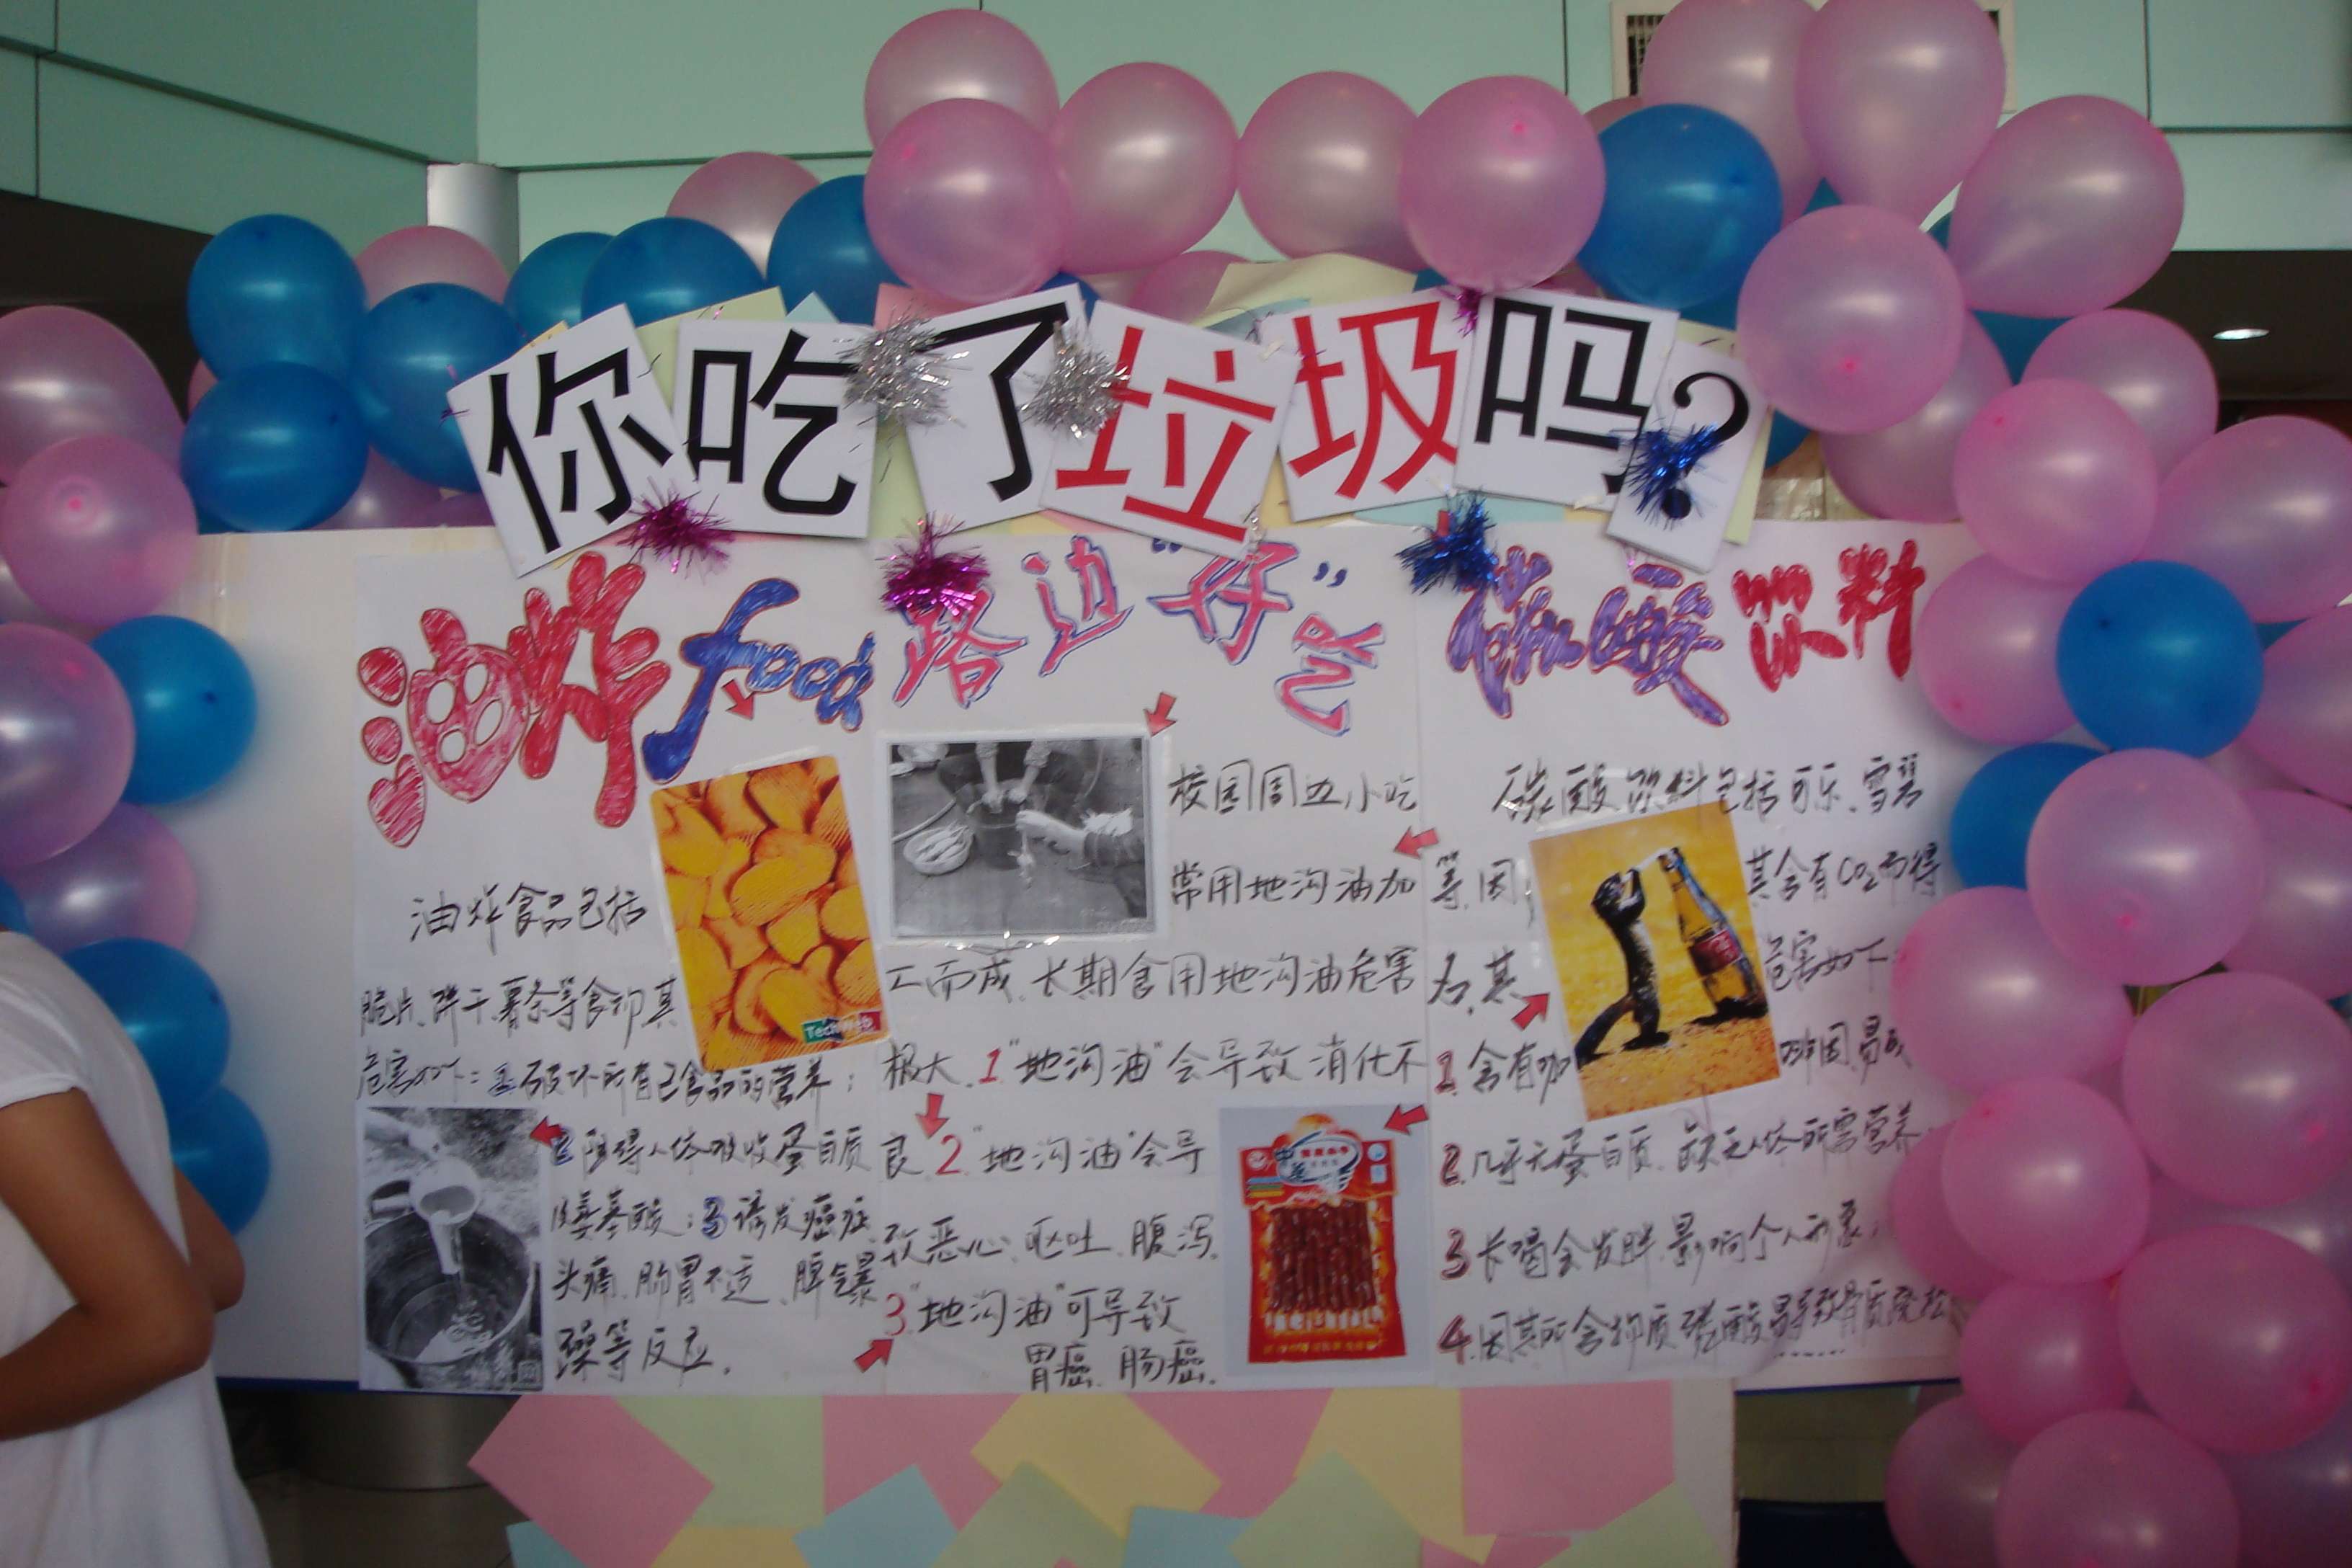 你吃了垃圾吗?
油炸food
油炸食品包括
脆片、饼干、薯条等食物,其
危害如下:1破坏所有已食品的营养;
2阻碍人体吸收蛋白质
胺基酸;3诱发癌症、
头痛、肠胃不适、脾气暴
躁等反应.
路边"好"吃
校园周边小吃
常用地沟油加
工而成.长期食用地沟油危害
极大.1"地沟油"会导致消化不
良 2"地沟油"会导
致恶心、呕吐、腹泻.
3"地沟油"可导致
胃癌、肠癌.
碳酸饮料
碳酸饮料包括可乐、雪碧
等,因 其含有CO2而得
名,其 危害如下:
1.含有咖 啡因
2.几乎无蛋白质,缺乏人体所需营养.
3 长喝会发胖,影响个人形象;
4.因其所含 磷酸易导致骨质疏松
......
TechWeb